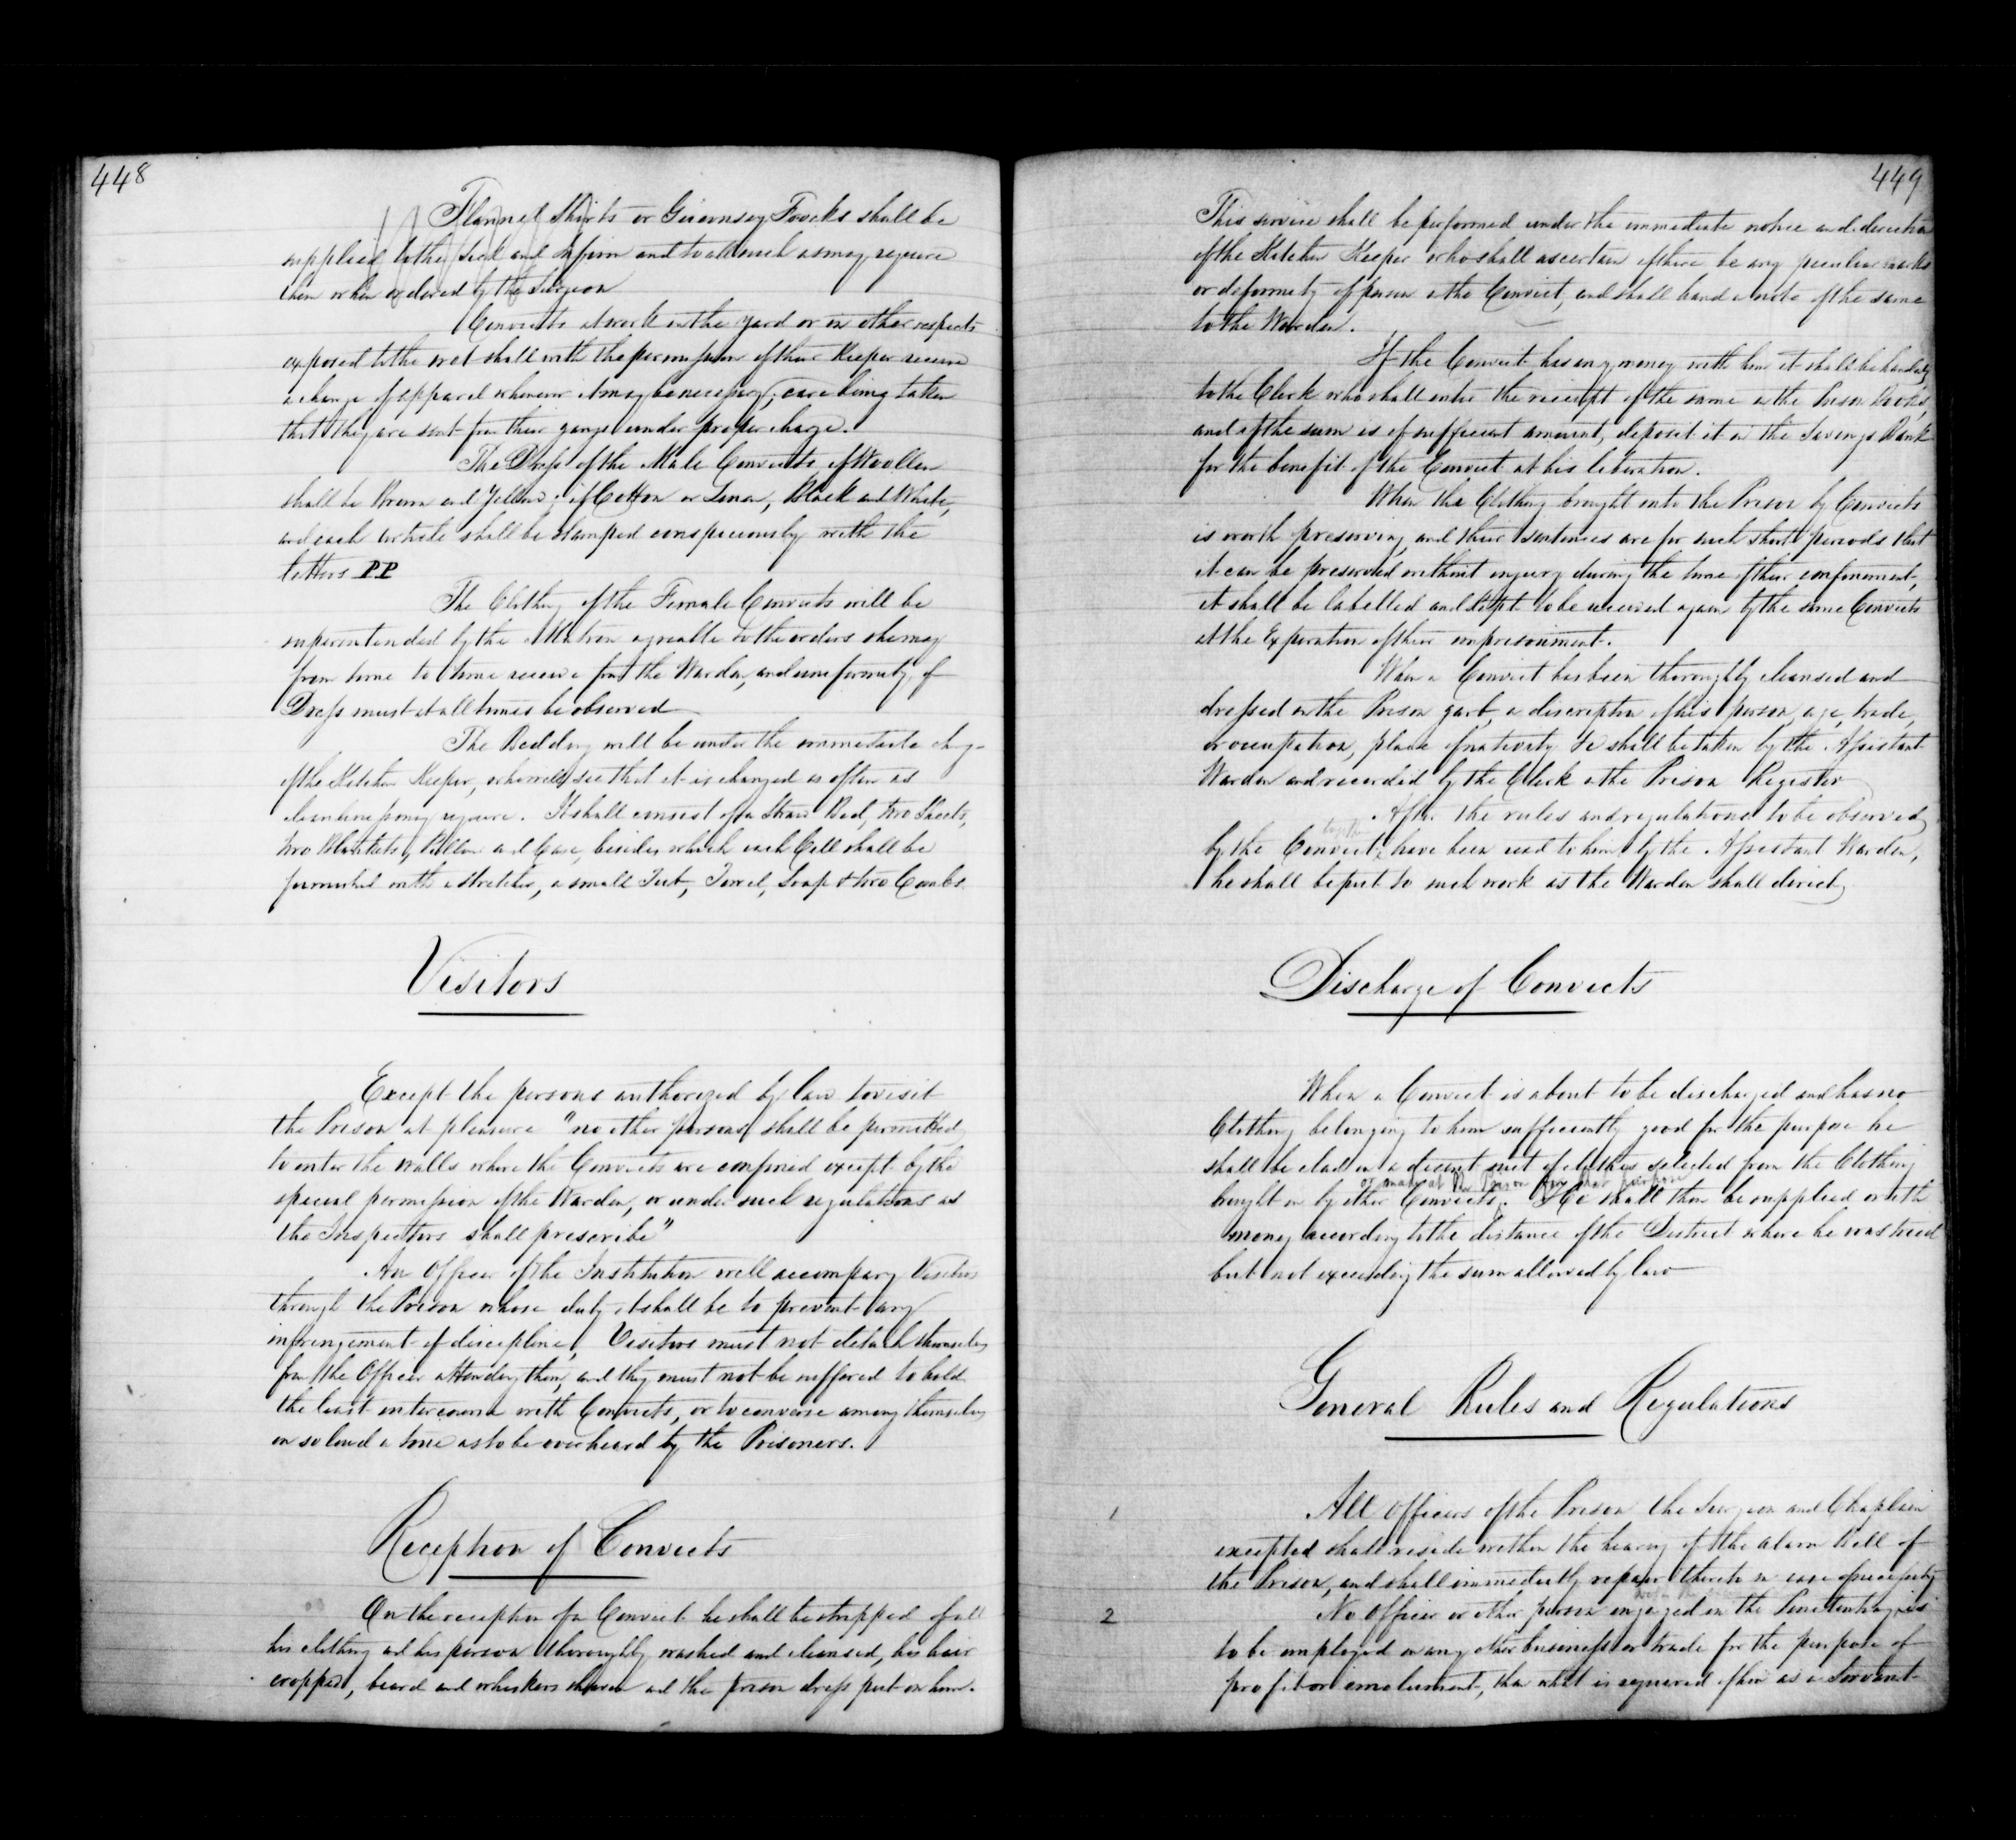 448
Flannel Shirts or Guernsey Frocks shall be
supplied to the Sick and Infirm and to all such as may require
them when ordered by the Surgeon
Convicts at work in the yard or in other respects
exposed to the wet shall with the permission of their Keeper receive
a change of apparel whenever it may be necessary, care being taken
that they are sent from their gangs under proper charge.
The Dress of the Male Convicts if Woollen
shall be Brown and Yellow; if Cotton or Linen, Black and White,
and each article shall be stamped conspicuously with the
letters P.P
The Clothing of the Female Convicts will be
superintended by the Matron agreeable to the orders she may
from time to time receive from the Warden, and uniformity of
Dress must at all times be observed
The Bedding will be under the immediate charge
of the Kitchen Keeper, who will see that it is changed as often as
cleanliness may require. It shall consist of a Straw Bed, two Sheets,
two Blankets, Pillow and Case, besides which each Cell shall be
furnished with a stretcher, a small Tub, Towel, Soap & two Combs.
Visitors
Except the persons authorized by law to visit
the Prison at pleasure "no other persons shall be permitted
to enter the walls where the Convicts are confined except by the
special permission of the Warden, or under such regulations as
the Inspectors shall prescribe"
An Officer of the Institution will accompany Visitors
through the Prison whose duty it shall be to prevent any
infringement of discipline, Visitors must not detach themselves
from the Officer attending them, and they must not be suffered to hold
the least intercourse with Convicts, or to converse among themselves
in so loud a tone as to be overheard by the Prisoners.
Reception of Convicts
On the reception of a Convict he shall be stripped of all
his clothing and his person thoroughly washed and cleansed, his hair
cropped, beard and whiskers shaved and the prison dress put on him.
449
This service shall be performed under the immediate notice and direction
of the Kitchen Keeper who shall ascertain if there be any peculiar marks
or deformity of person in the Convict, and shall hand a note of the same
to the Warden.
If the Convict has any money with him it shall be handed
to the Clerk who shall enter the receipt of the same in the Prison Books,
and if the sum is of sufficient amount, deposit it in the Savings Bank
for the benefit of the Convict at his liberation.
When the Clothing brought into the Prison by Convicts
is worth preserving and their sentences are for such short periods that
it can be preserved without injury during the time of their confinement,
it shall be labelled and kept to be received again by the same Convicts
at the Expiration of their imprisonment.
When a Convict has been thoroughly cleansed and
dressed in the Prison garb, a description of his person, age, trade,
or occupation, place of nativity &c shall be taken by the Assistant
Warden and recorded by the Clerk in the Prison Register
After the rules and regulations to be observed
by the Convict, have been read to him by the Assistant Warden,
he shall be put to such work as the Warden shall direct,
Discharge of Convicts
When a Convict is about to be discharged and has no
Clothing belonging to him sufficiently good for the purpose he
shall be clad in a decent suit of clothes selected from the Clothing
or made at the Prison for that purpose
brought in by other Convicts. He shall then be supplied with
money according to the distance of the District where he was tried
but not exceeding the sum allowed by law
General Rules and Regulations
1 All Officers of the Prison the Surgeon and Chaplain
excepted shall reside within the hearing of the alarm bell of
the Prison, and shall immediately repair thereto in case of necessity
2 No Officer or other person engaged in the Penitentiary is
to be employed in any other business or trade for the purpose of
profit or emolument, than what is required of him as a Servant